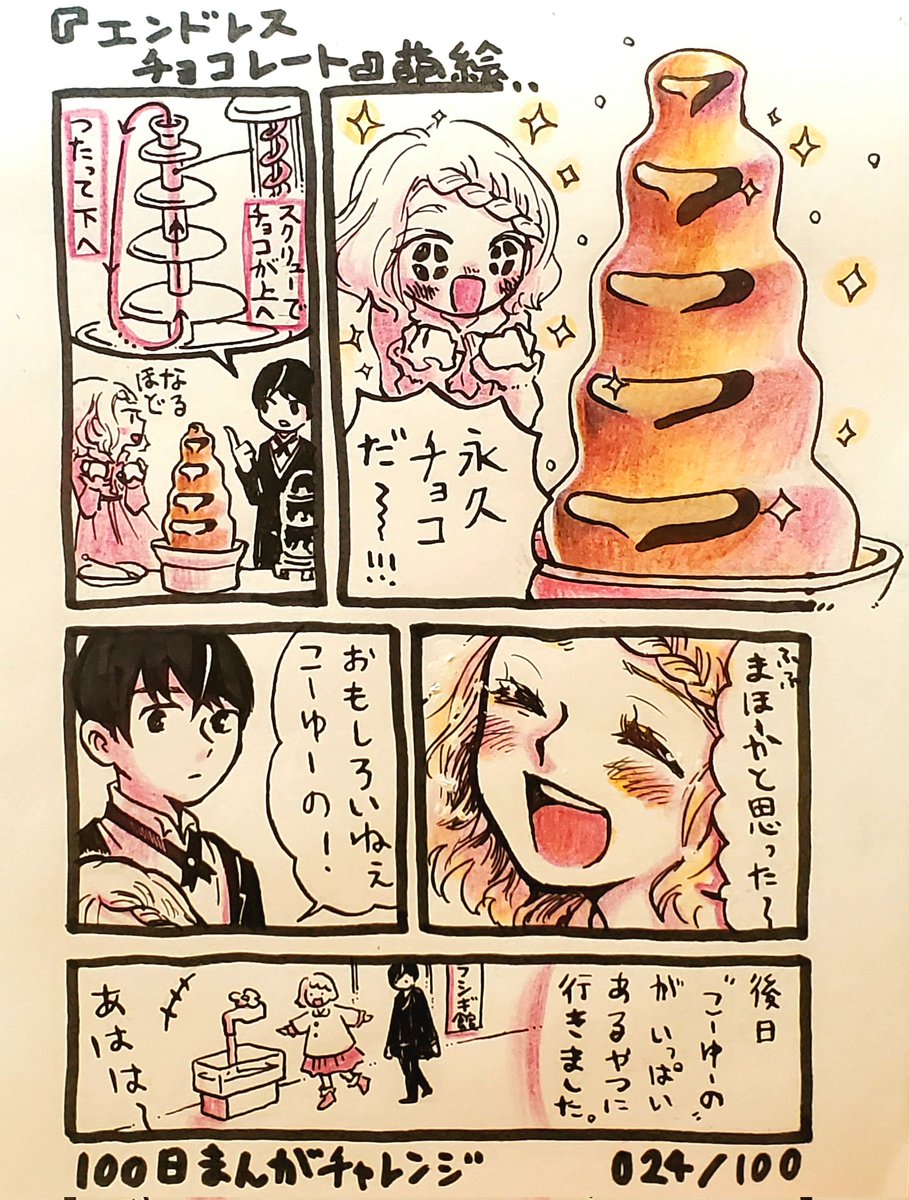 『エンドレス
チョコレート』萌絵..
永久
チョコ
だ〜〜!!!
スクリューで
チョコが上へ
つたって下へ
なる
ほど
ふふ
まほーかと思った〜
おもしろいねぇ
こーゆーの!
後日
"こーゆーの"
がいっぱい
あるやつに
行きました。
フシギ館
あはは〜
100日まんがチャレンジ
024/100